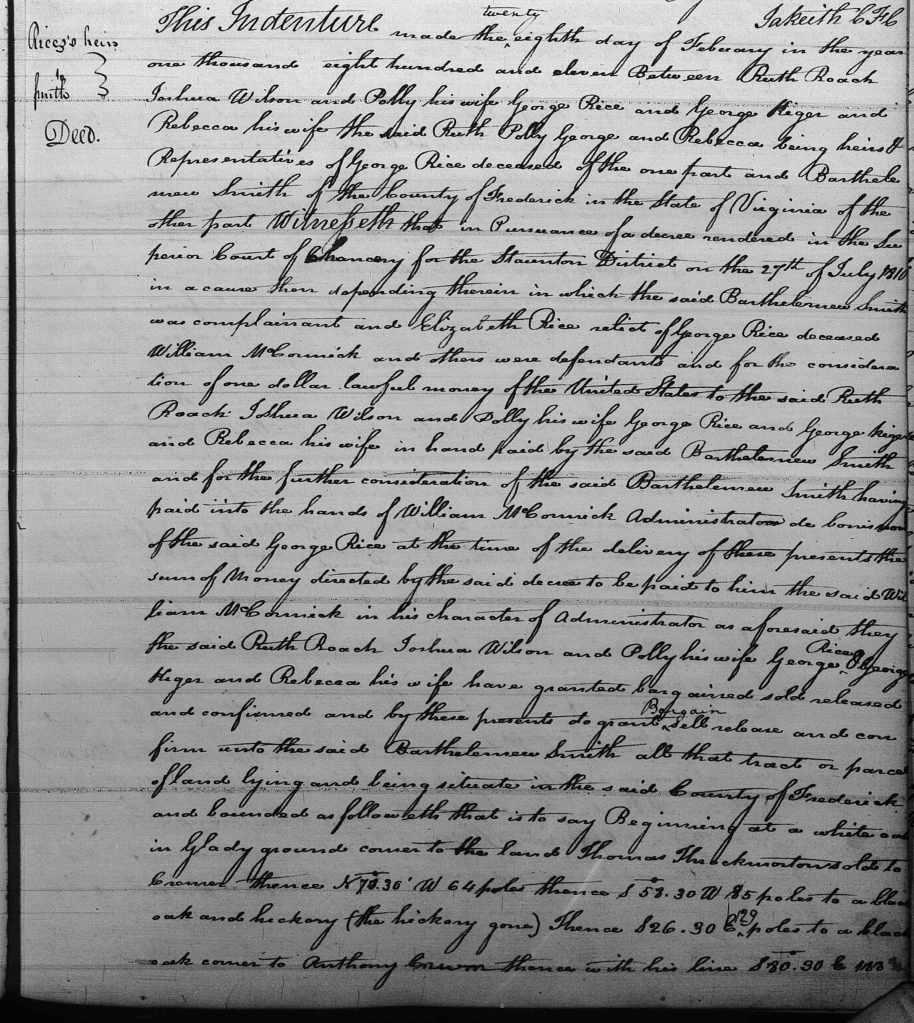 Jakeith C F C
Rices's heirs
to
Smith
Deed.
This Indenture made the twenty eighth day of Feberary in the year
one thousand eight hundred and eleven Between Ruth Roach
Joshua Wilson and Polly his wife George Rice and George Kiger and
Rebecca his wife the said Ruth Polly George and Rebecca being heirs &
Representatives of George Rice deceased of the one part and Barthele
mew Smith of the County of Frederick in the State of Virginia of the
other part Witnesseth that in Pursuance of a decree rendered in the Su
perior Court of Chancery for the Staunton District on the 27th of July 1810
in a cause then depending therein in which the said Barthelemew Smith
was complainant and Elizabeth Rice relict of George Rice deceased
William McCormick and others were defendants and for the considera
tion of one dollar lawful money of the United States to the said Ruth
Roach Joshua Wilson and Polly his wife George Rice and George Kiger
and Rebecca his wife in hand paid by the said Barthelemew Smith
and for the further consideration of the said Barthelemew Smith having
paid into the hands of William McCormick Administrator de bonis non
of the said George Rice at the time of the delivery of these presents the
sum of Money directed by the said decree to be paid to him the said Wil
liam McCormick in his character of Administrator as aforesaid they
the said Ruth Roach Joshua Wilson and Polly his wife George Rice & George
Kiger and Rebecca his wife have granted bargained sold released
and confirmed and by these presents do grant Bargain sell release and con
firm unto the said Barthelemew Smith all that tract or parcel
of land lying and being situate in the said County of Frederick
and bounded as followeth that is to say Beginning at a white oak
in Glady ground corner to the land Thomas Throckmorton sold to
Cromer thence N 70.30' W 64 poles thence S 53.30 W 85 poles to a black
oak and hickory (the hickory gone) Thence S 26.30 E 29 poles to a black
oak corner to Anthony thence with his line S 30.30 E 113